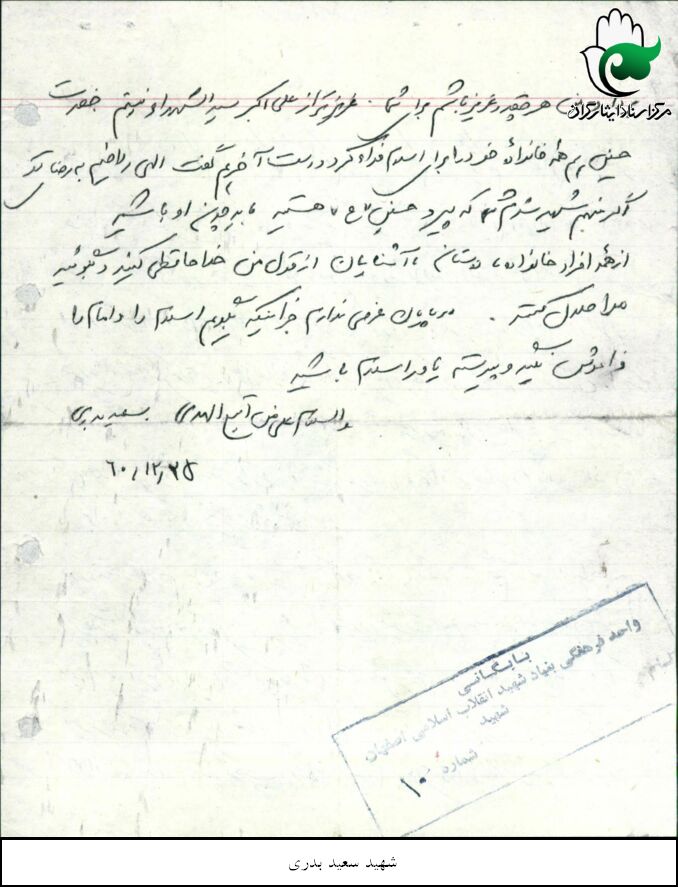 مرکز اسناد ایثارگران
هر چقدر عزیز باشم برای شما . عزیزتر از علی اکبر سید الشهداء نیستم حضرت
حسین همه خانواده خود در راه اسلام فدا کرد و دست آخر هم گفت الهی راضیم به رضا تک
اگر منهم شهید شدم که پیرو حسین هستید باید چون او باشید
از همه افراد خانواده ، دوستان ، آشنایان از قول من خدا حافظی کنید و بگوئید
مرا حلال کنند . در پایان عرضی ندارم جز اینکه بگویم اسلام را و امام را
فراموش نکنید و پیوسته یاور اسلام باشید
والسلام علی من اتبع الهدی سعید بدری
۶۰/۱۲/۲۵
واحد فرهنگی بنیاد شهید انقلاب اسلامی اصفهان
بایگانی
شهید
شماره ۱۰
شهید سعید بدری